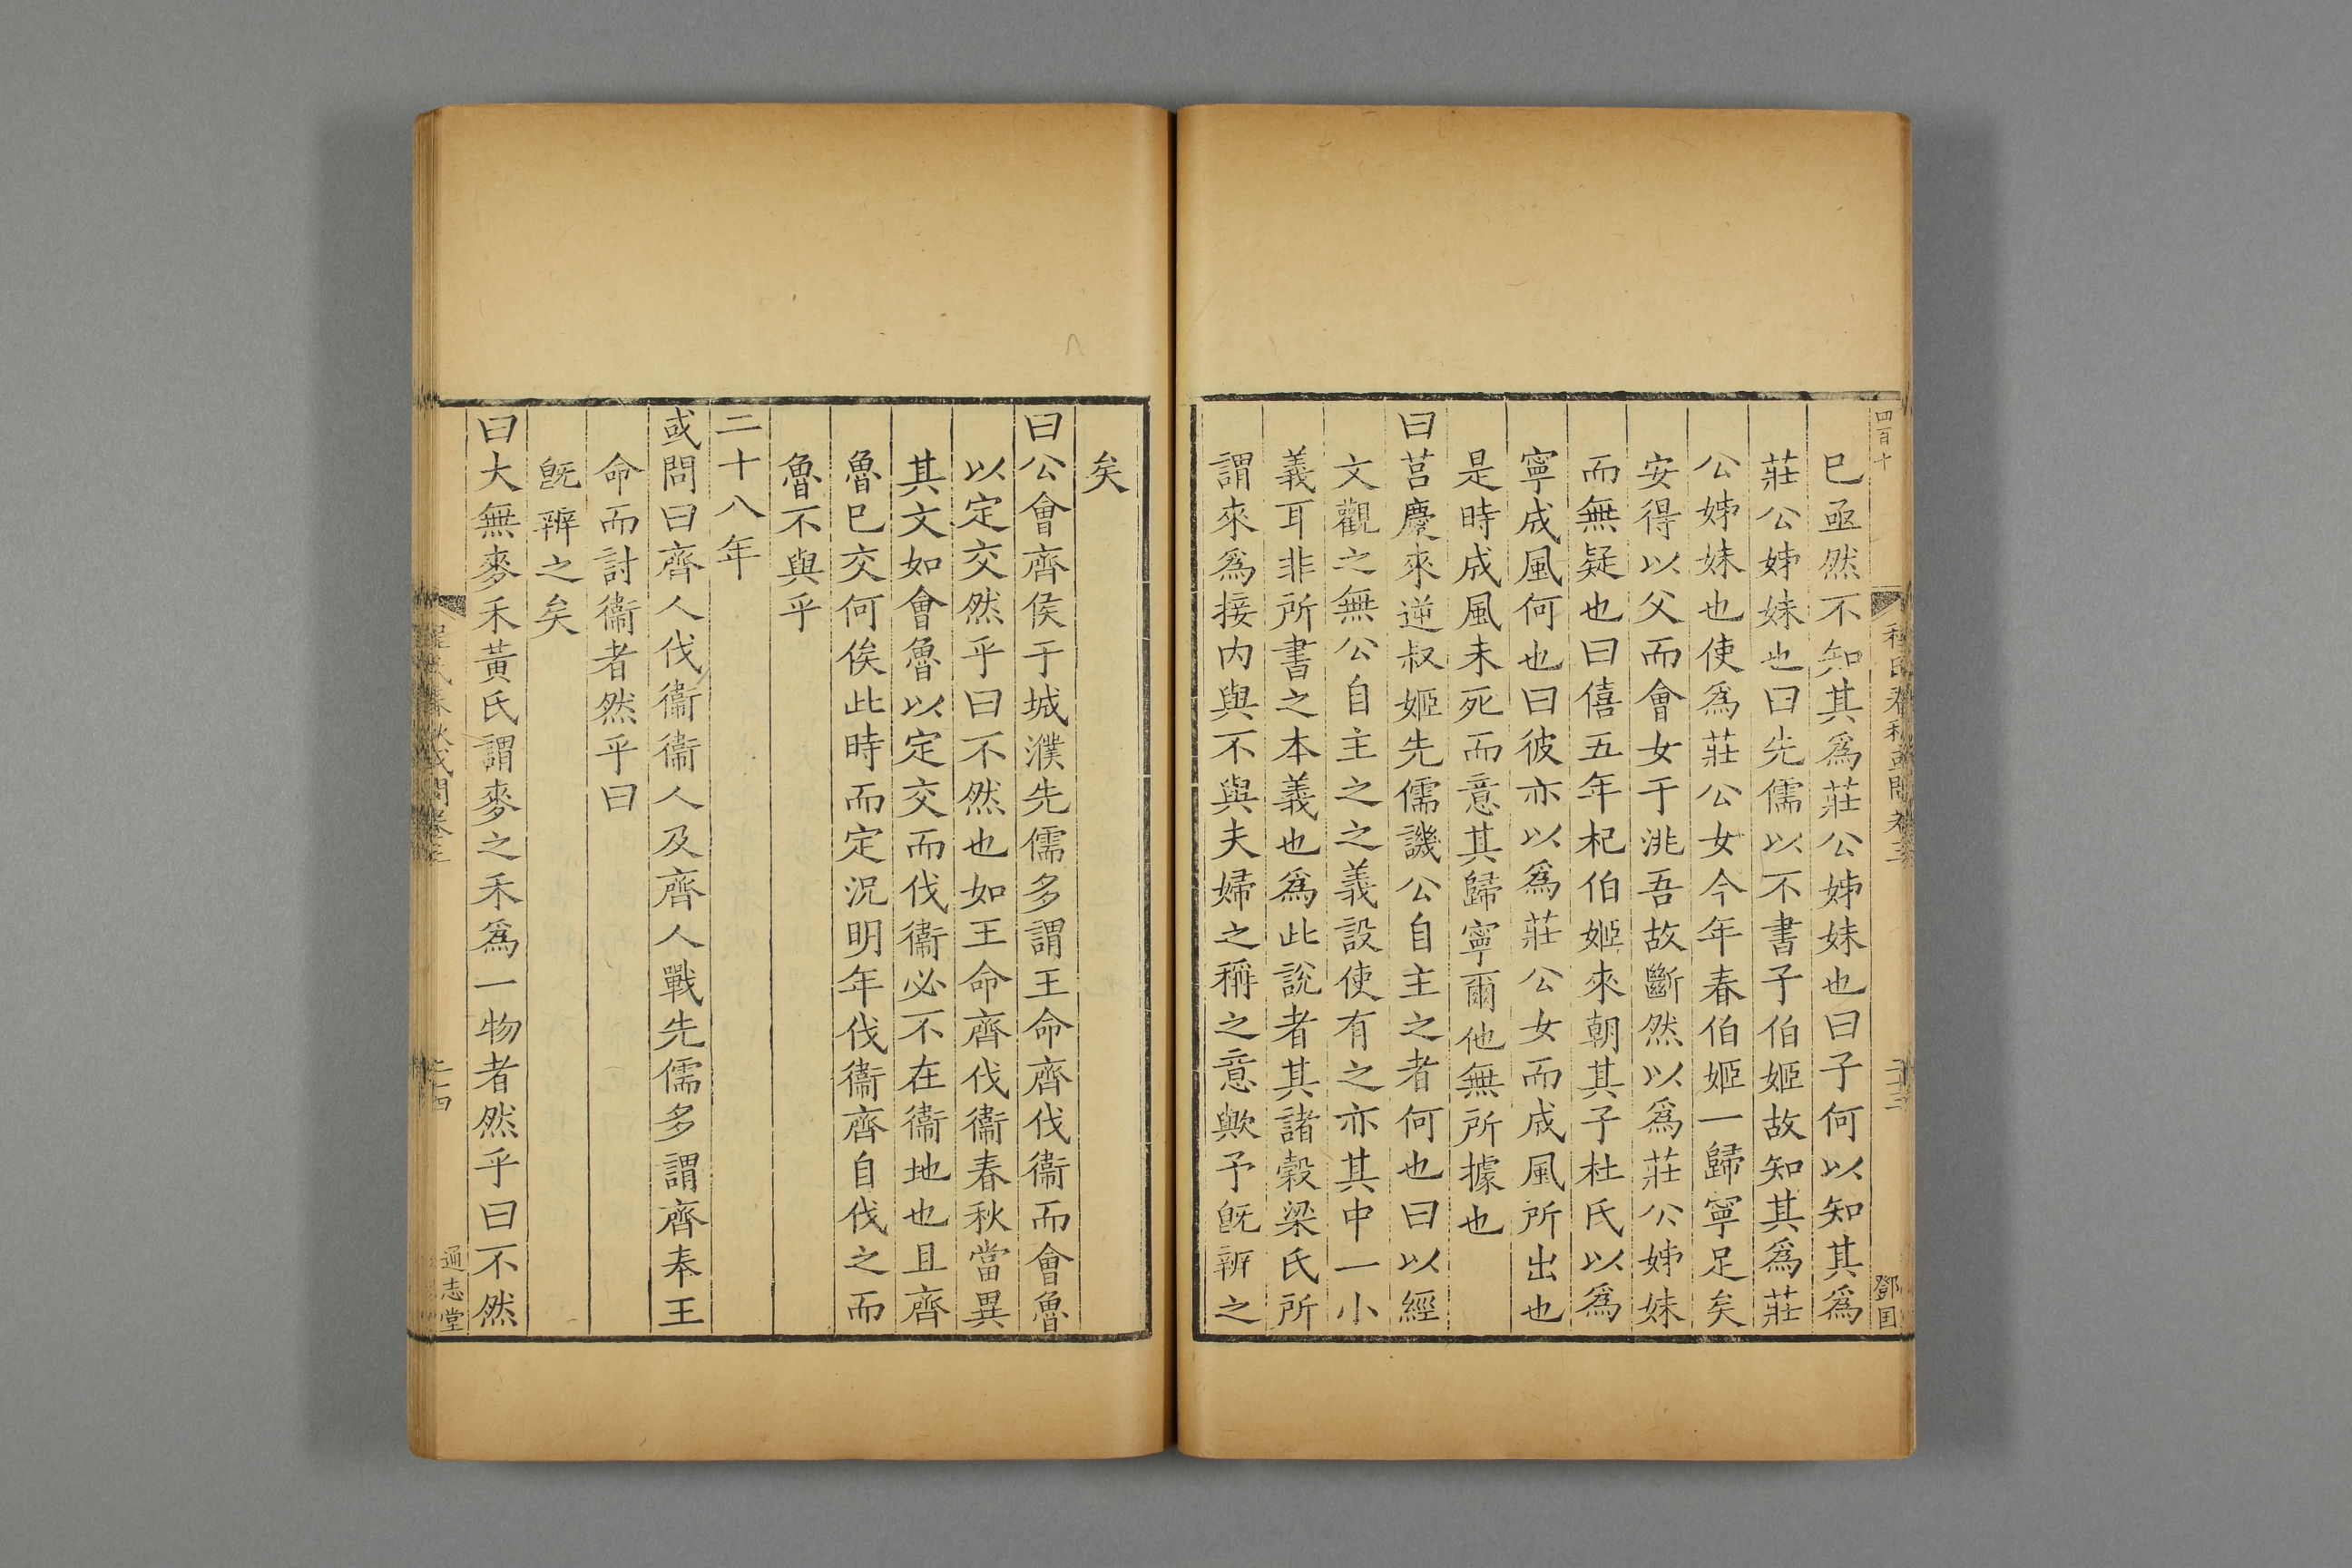 四百十
已亟然不知其爲莊公姊妹也曰子何以知其爲
莊公姊妹也曰先儒以不書子伯姬故知其爲莊
公姊妹也使爲莊公女今年春伯姬一歸寧足矣
安得以父而會女于洮吾故斷然以爲莊公姊妹
而無疑也曰僖五年杞伯姬來朝其子杜氏以爲
寧成風何也曰彼亦以爲莊公女而成風所出也
是時成風未死而意其歸寧爾他無所據也
曰莒慶來逆叔姬先儒譏公自主之者何也曰以經
文觀之無公自主之之義設使有之亦其中一小
義耳非所書之本義也爲此說者其諸穀梁氏所
謂來爲接內與不與夫婦之稱之意歟予旣辨之
矣
曰公會齊侯于城濮先儒多謂王命齊伐衞而會魯
以定交然乎曰不然也如王命齊伐衞春秋當異
其文如會魯以定交而伐衞必不在衞地也且齊
魯已交何俟此時而定況明年伐衞齊自伐之而
魯不與乎
二十八年
或問曰齊人伐衞衞人及齊人戰先儒多謂齊奉王
命而討衞者然乎曰
旣辨之矣
曰大無麥禾黃氏謂麥之禾爲一物者然乎曰不然
通志堂